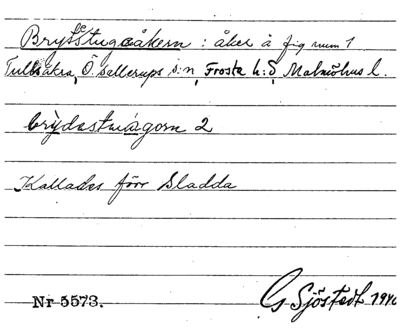 Brystestugeåkern : åker å fig num 1
Tullsåkra, Ö. Sallerups s:n, Frosta h:d, Malmöhus l.
brỳdastuàgorn 2
Kallades förr Sladda
Nr 5573. G Sjöstedt 1940